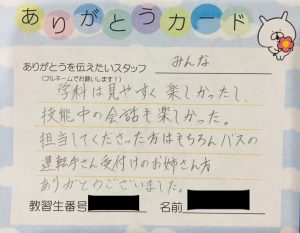 ありがとうカード
ありがとうを伝えたいスタッフ みんな
(フルネームでお願いします!)
学科は見やすく楽しかったし、
技能中の会話も楽しかった。
担当してくださった方はもちろんバスの
運転手さん受付けのお姉さん方
ありがとうございました。
教習生番号 名前